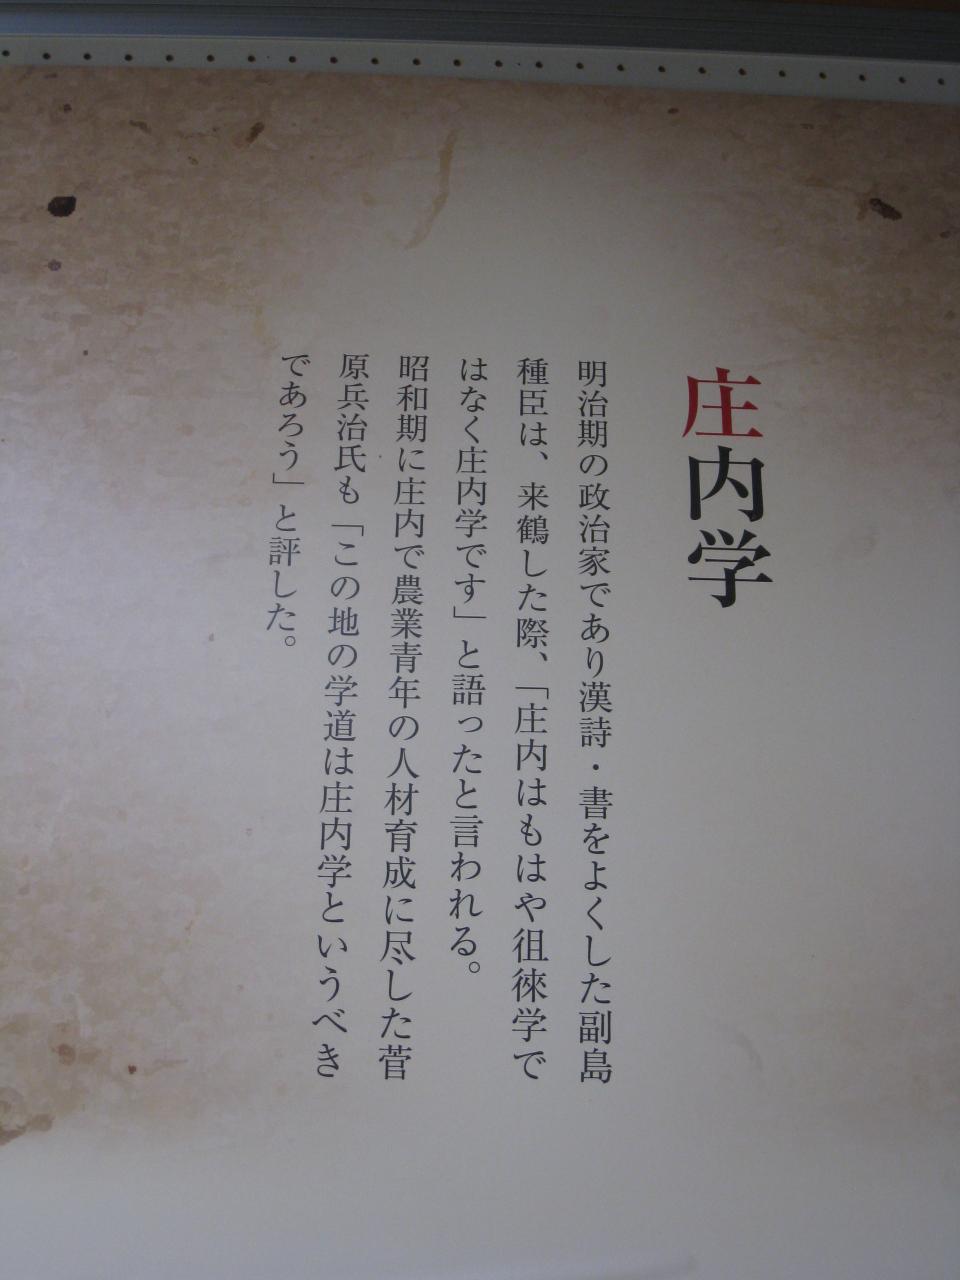 庄内学
明治期の政治家であり漢詩・書をよくした副島
種臣は、来鶴した際、「庄内はもはや徂徠学で
はなく庄内学です」と語ったと言われる。
昭和期に庄内で農業青年の人材育成に尽した菅
原兵治氏も「この地の学道は庄内学というべき
であろう」と評した。